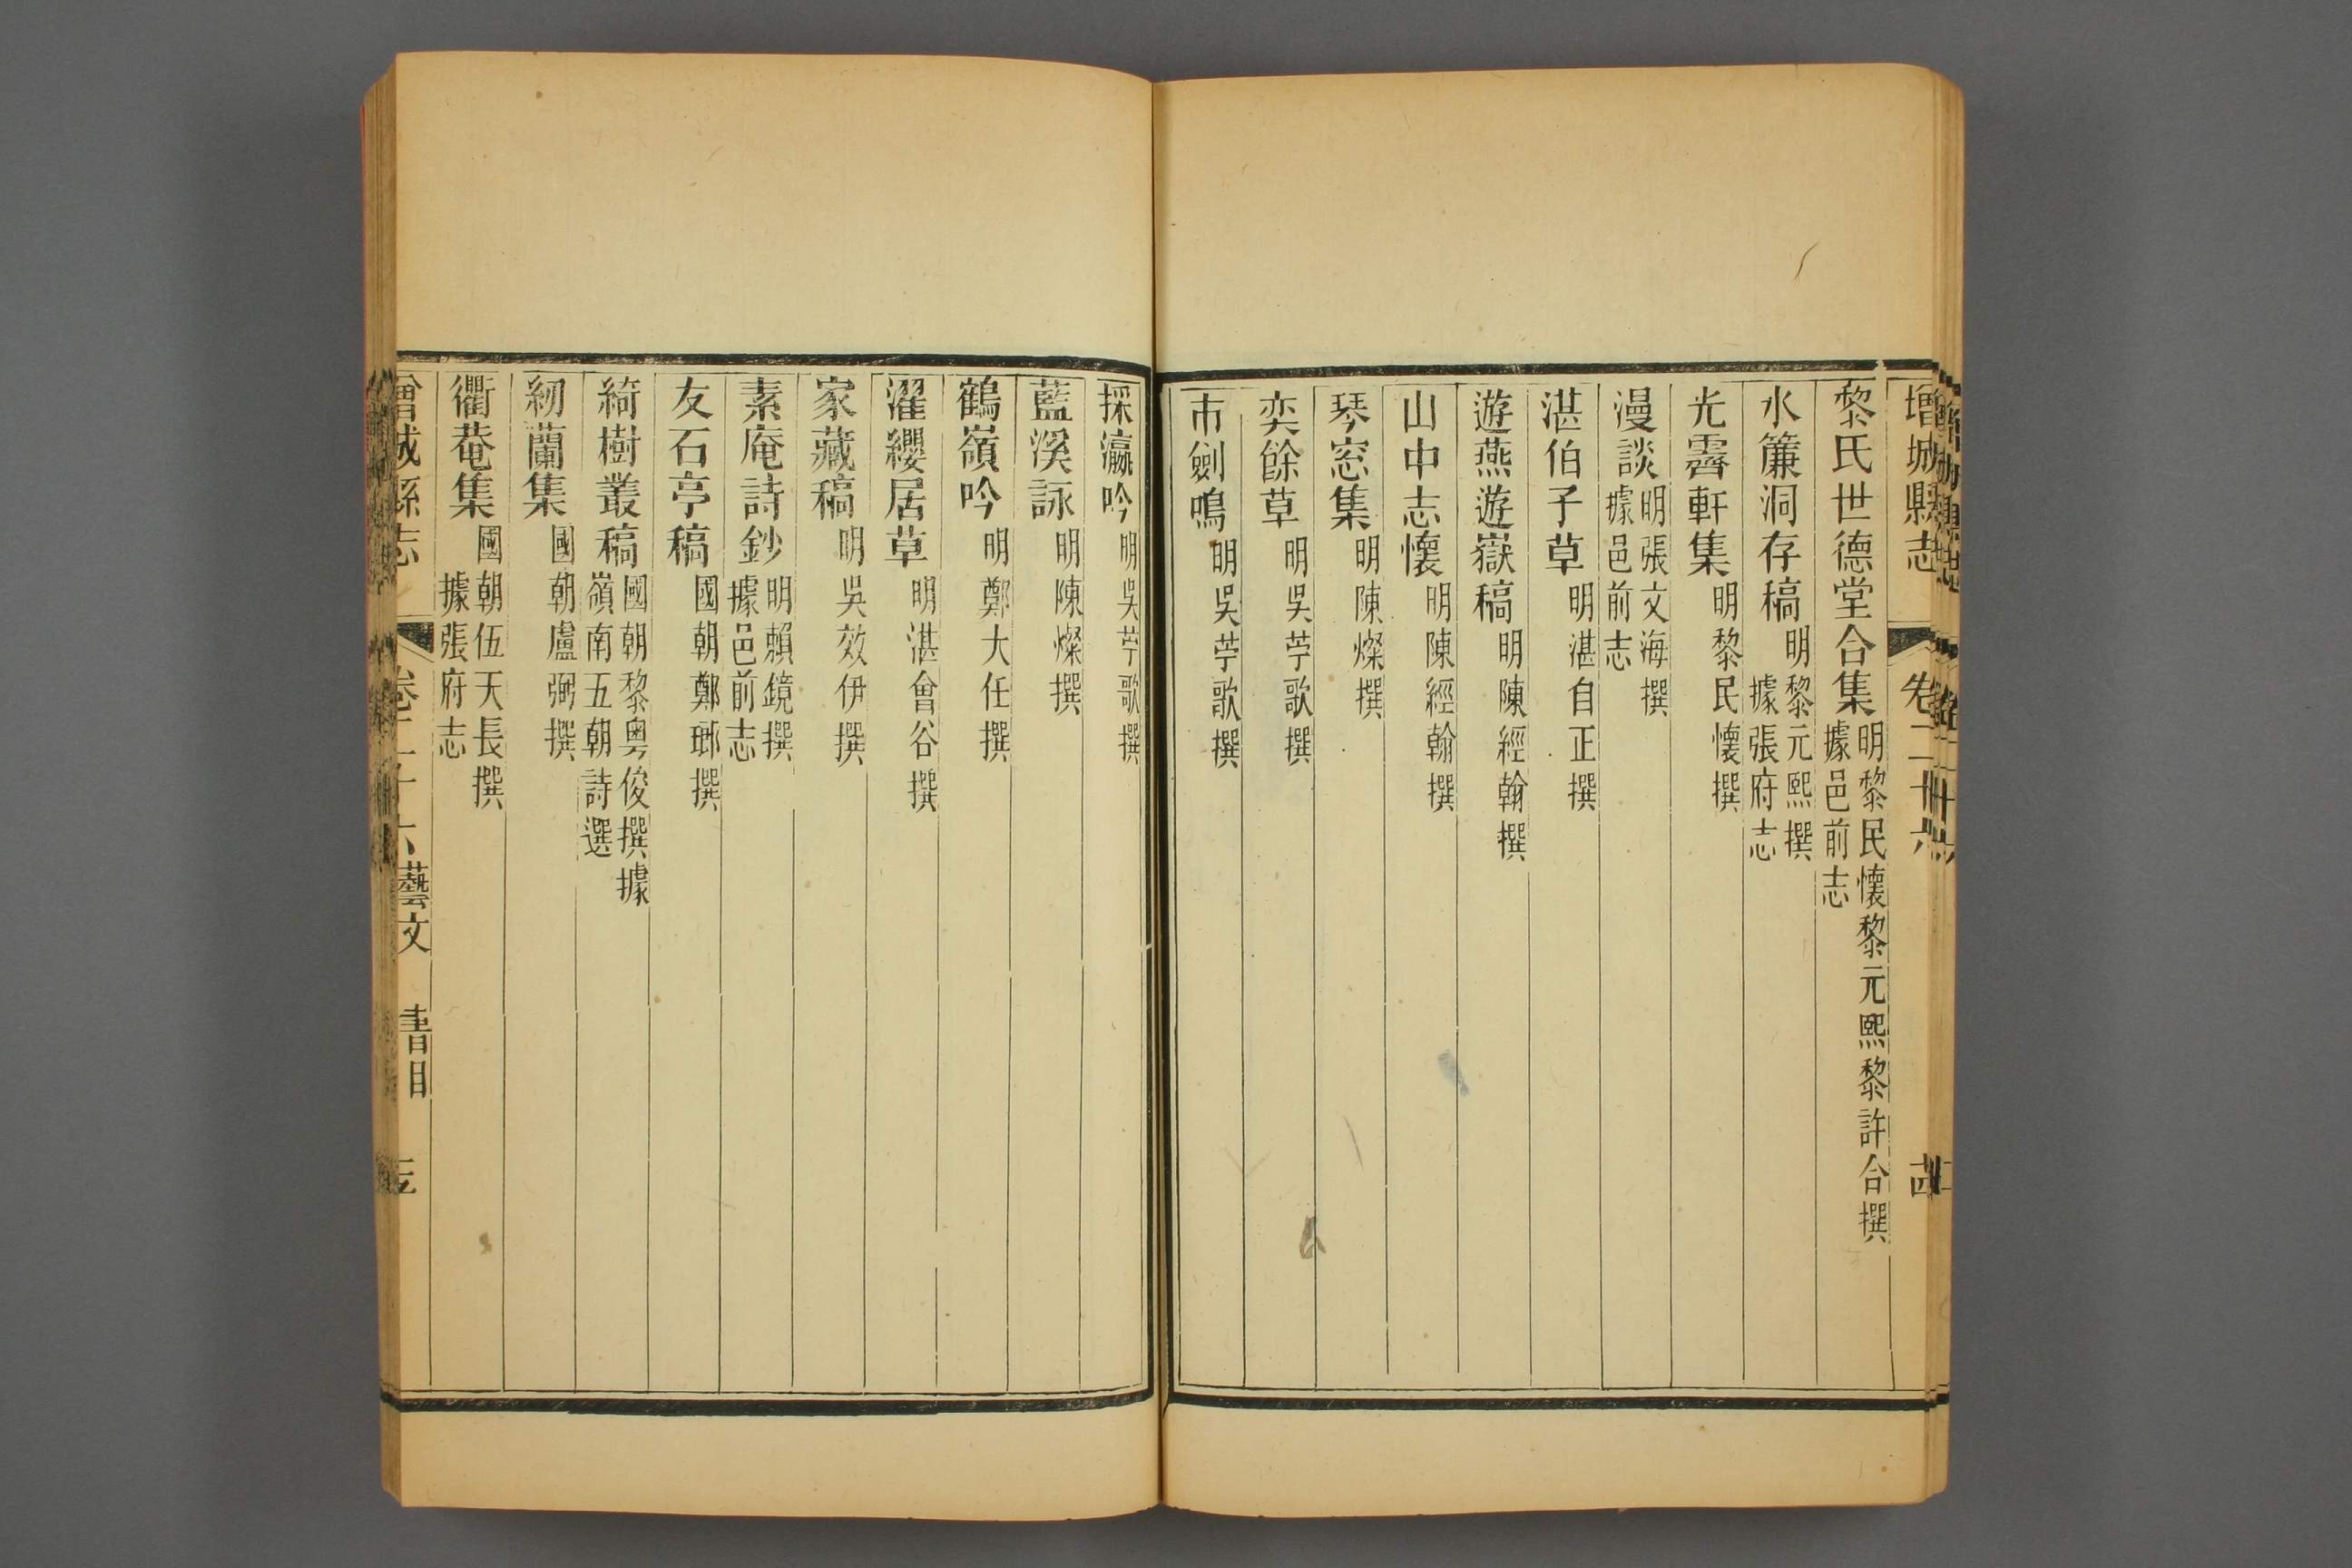 增城縣志 卷二十六
黎氏世德堂合集 明黎民懷黎元熙黎許合撰據邑前志
水簾洞存稿 明黎元熙撰據張府志
光霽軒集 明黎民懷撰
漫談 明張文海撰據邑前志
湛伯子草 明湛自正撰
遊燕遊嶽稿 明陳經翰撰
山中志懷 明陳經翰撰
琴窓集 明陳燦撰
奕餘草 明吳苧歌撰
市劍鳴 明吳苧歌撰
採瀛吟 明吳苧歌撰
藍溪詠 明陳燦撰
鶴嶺吟 明鄭大任撰
濯纓居草 明湛會谷撰
家藏稿 明吳效伊撰
素庵詩鈔 明賴鏡撰據邑前志
友石亭稿 國朝鄭琊撰
綺樹叢稿 國朝黎粵俊撰據嶺南五朝詩選
紉蘭集 國朝盧弼撰
衢菴集 國朝伍天長撰據張府志
增城縣志 卷二十六 藝文 書目